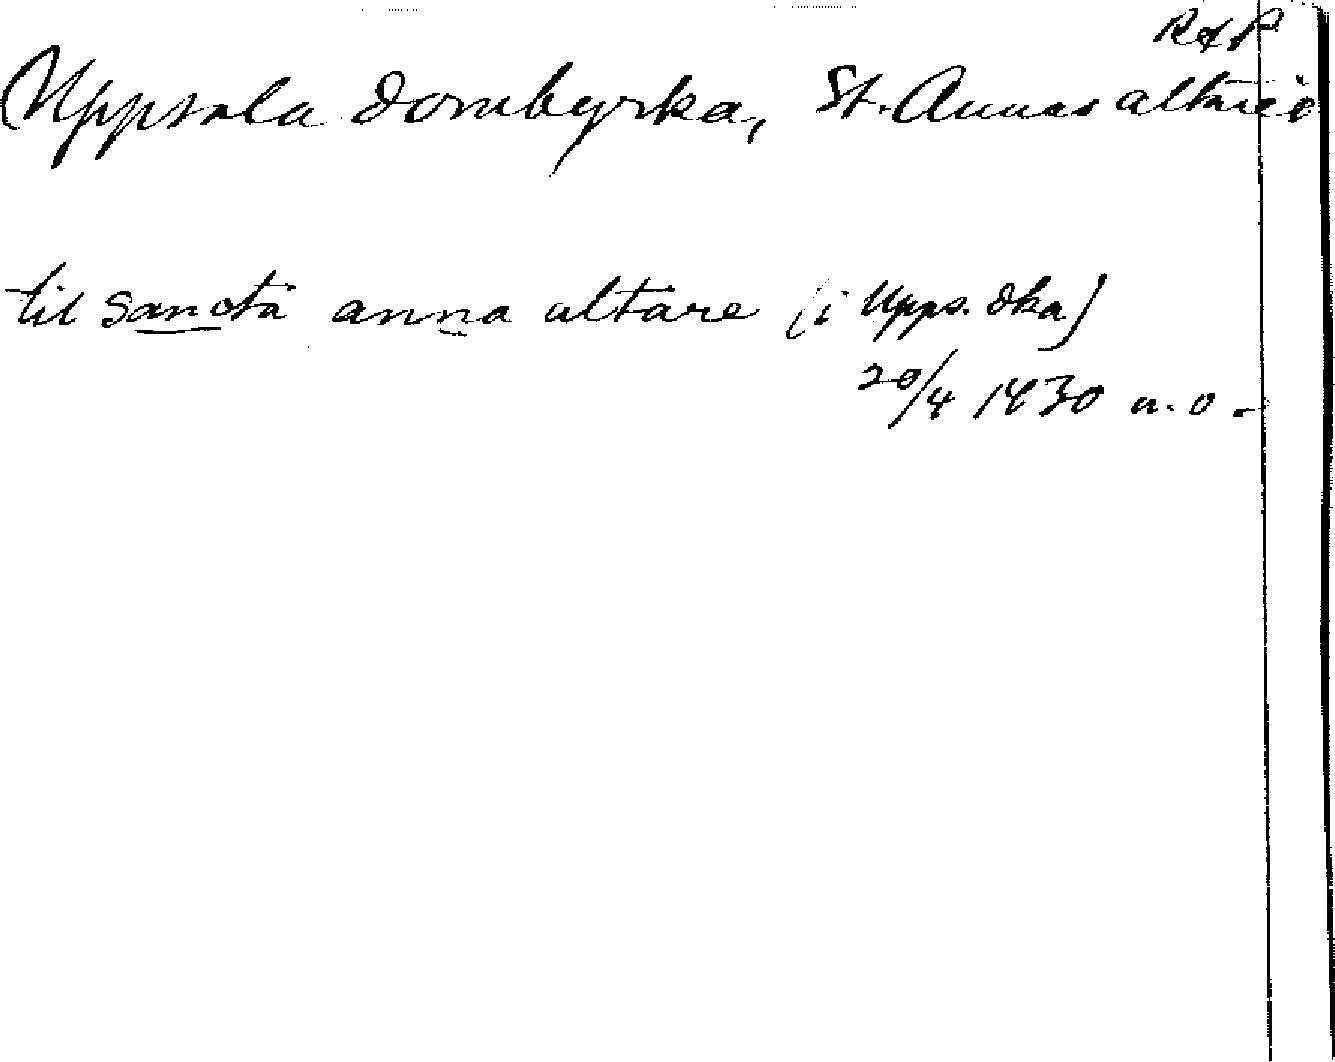 RAP
Uppsala domkyrka, St. Annas altare
til sancta anna altare (i Upps. dka)
20/4 1430 n. o.